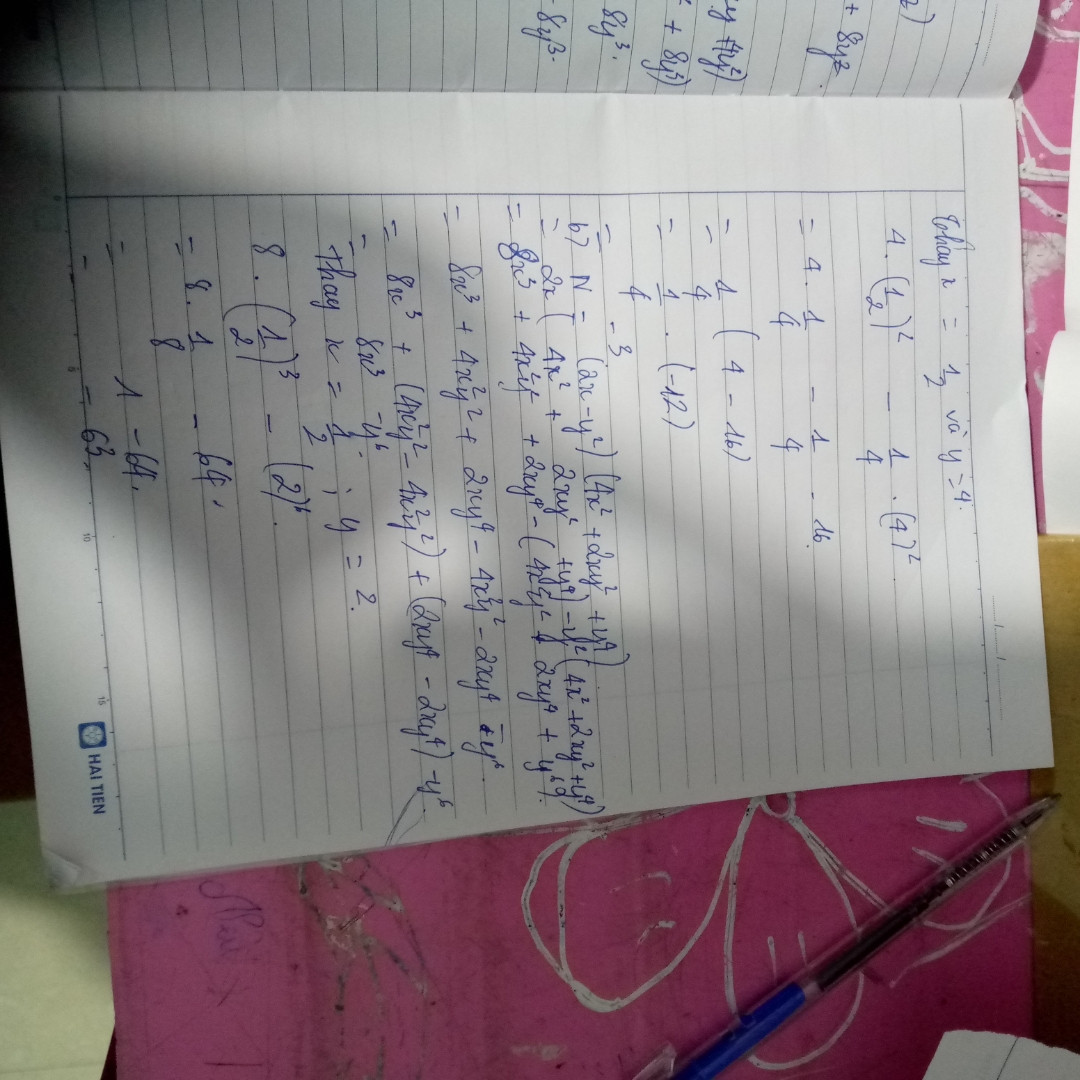 z)
+ 8yz
y + 4y²)
+ 8y³)
8y³.
- 8y³.
Thay x = 1/2 và y = 4.
4.(1/2)² - 1/4 . (4)².
= 4. 1/4 - 1/4 . 16.
= 1/4 ( 4 - 16)
= 1/4 . (-12)
= -3
b) N = (2x - y²) (4x² + 2xy² + y⁴)
= 2x ( 4x² + 2xy² + y⁴) - y² (4x² + 2xy² + y⁴)
= 8x³ + 4x²y² + 2xy⁴ - (4x²y² + 2xy⁴ + y⁶).
= 8x³ + 4x²y² + 2xy⁴ - 4x²y² - 2xy⁴ - y⁶.
= 8x³ + (4x²y² - 4x²y²) + (2xy⁴ - 2xy⁴) - y⁶.
= 8x³ - y⁶
Thay x = 1/2 ; y = 2.
8 . (1/2)³ - (2)⁶.
= 8. 1/8 - 64.
= 1 - 64.
= - 63
5 10 15
HAI TIEN